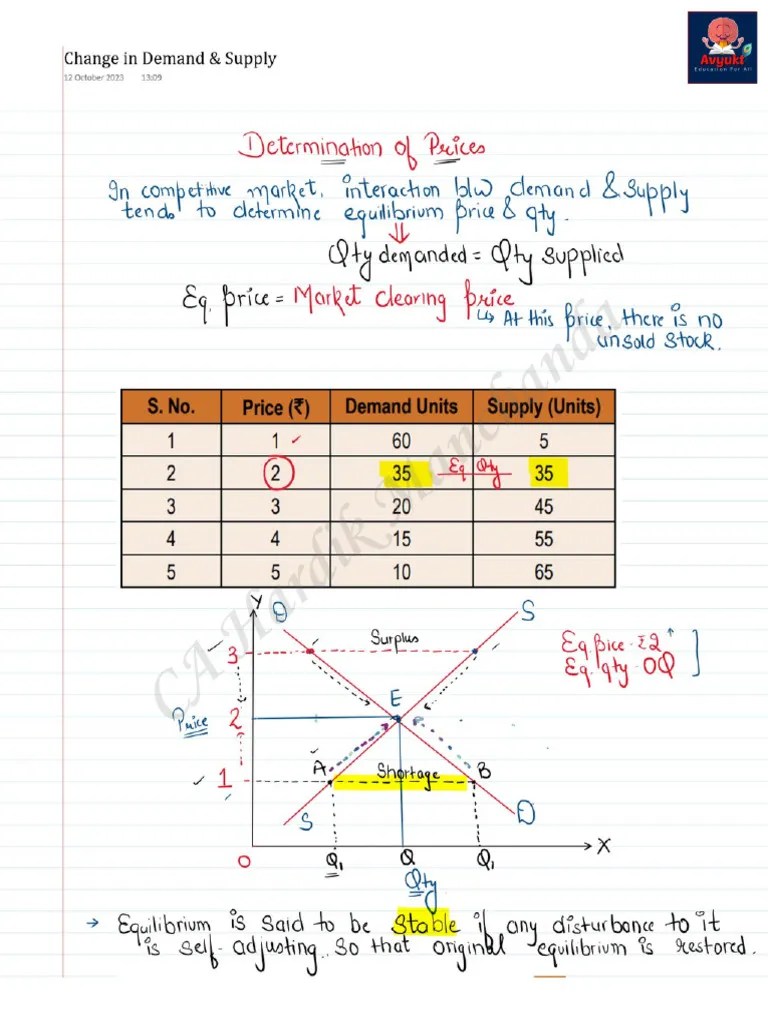 Avyukt
Education For All
Change in Demand & Supply
12 October 2023 13:09
Determination of Prices
In competitive market, interaction b/w demand & supply
tends to determine equilibrium price & qty.
⇓
Qty demanded = Qty supplied
Eq. price = Market clearing price
↳ At this price, there is no
unsold stock.
S. No. Price (₹) Demand Units Supply (Units)
1 1 ✓ 60 5
2 2 35 Eq Qty 35
3 3 20 45
4 4 15 55
5 5 10 65
CA Hardik Manchanda
Y D S
Surplus
Eq. price - ₹2 ↑
Eq. qty - OQ
3
E
Price 2
A Shortage B
1
S D
O Q₁ Q Q₁ X
Qty
→ Equilibrium is said to be stable if any disturbance to it
is self-adjusting so that original equilibrium is restored.